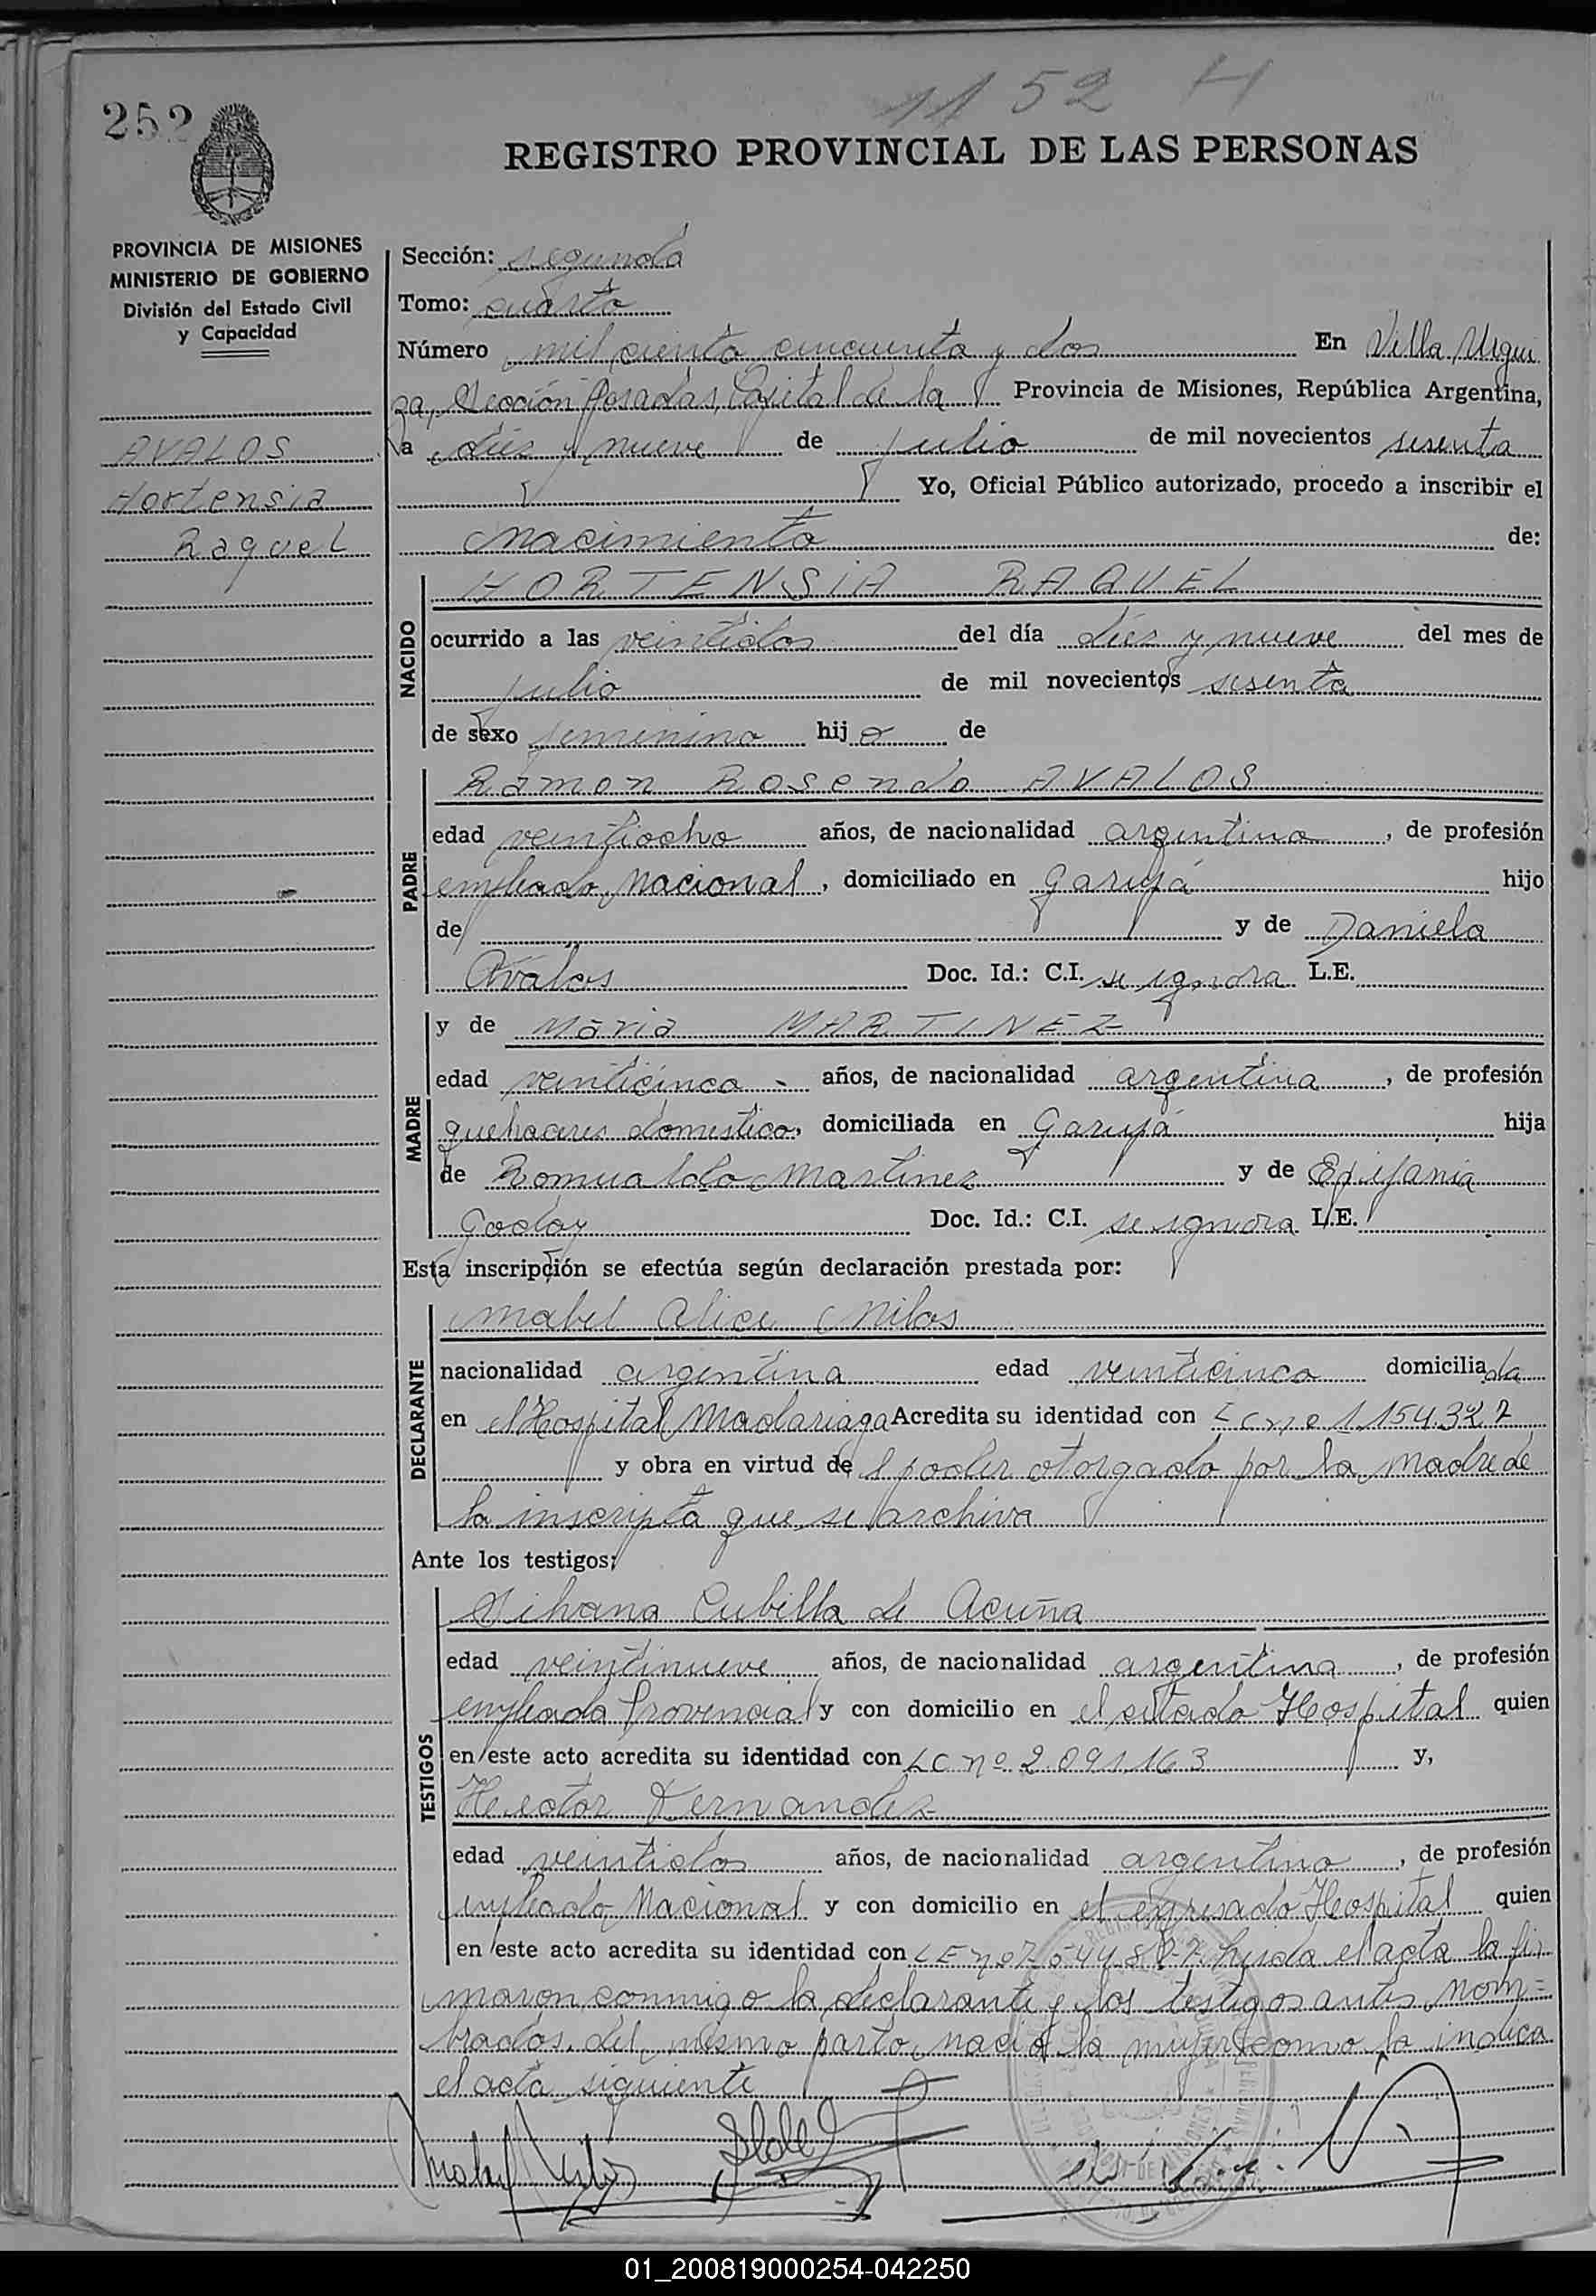 1152 H
252
REGISTRO PROVINCIAL DE LAS PERSONAS
PROVINCIA DE MISIONES
MINISTERIO DE GOBIERNO
División del Estado Civil
y Capacidad
AVALOS
Hortensia
Raquel
Sección: segunda
Tomo: cuarto
Número mil ciento cincuenta y dos En Villa Urqui
za, Sección Posadas, Capital de la Provincia de Misiones, República Argentina,
a diez y nueve de julio de mil novecientos sesenta
Yo, Oficial Público autorizado, procedo a inscribir el
nacimiento de:
NACIDO
HORTENSIA RAQUEL
ocurrido a las veintidos del día diez y nueve del mes de
julio de mil novecientos sesenta
de sexo femenino hija de
PADRE
Ramon Rosendo AVALOS
edad veintiocho años, de nacionalidad argentino, de profesión
empleado Nacional, domiciliado en Garupá hijo
de y de Daniela
Avalos Doc. Id.: C.I. se ignora L.E.
MADRE
y de Maria MARTINEZ
edad veinticinco - años, de nacionalidad argentina, de profesión
quehaceres domestico, domiciliada en Garupá hija
de Romualdo Martinez y de Epifania
Godoy Doc. Id.: C.I. se ignora L.E.
Esta inscripción se efectúa según declaración prestada por:
DECLARANTE
Mabel Alice Milos
nacionalidad argentina edad veinticinco domiciliada
en el Hospital Madariaga Acredita su identidad con LC nº 1.154.327
y obra en virtud del poder otorgado por la madre de
la inscripta que se archiva
Ante los testigos:
TESTIGOS
Cubilla de Acuña
edad veintinueve años, de nacionalidad argentina, de profesión
empleada Provincial y con domicilio en el citado Hospital quien
en este acto acredita su identidad con LC nº 2.091.163 y,
Hector Fernandez
edad veintidos años, de nacionalidad argentino, de profesión
empleado Nacional y con domicilio en el expresado Hospital quien
en este acto acredita su identidad con LE nº leida el acta la fir
maron conmigo la declarante y los testigos antes nom=
brados. del mismo parto nació la mujer como la indica
el acta siguiente
01_200819000254-042250